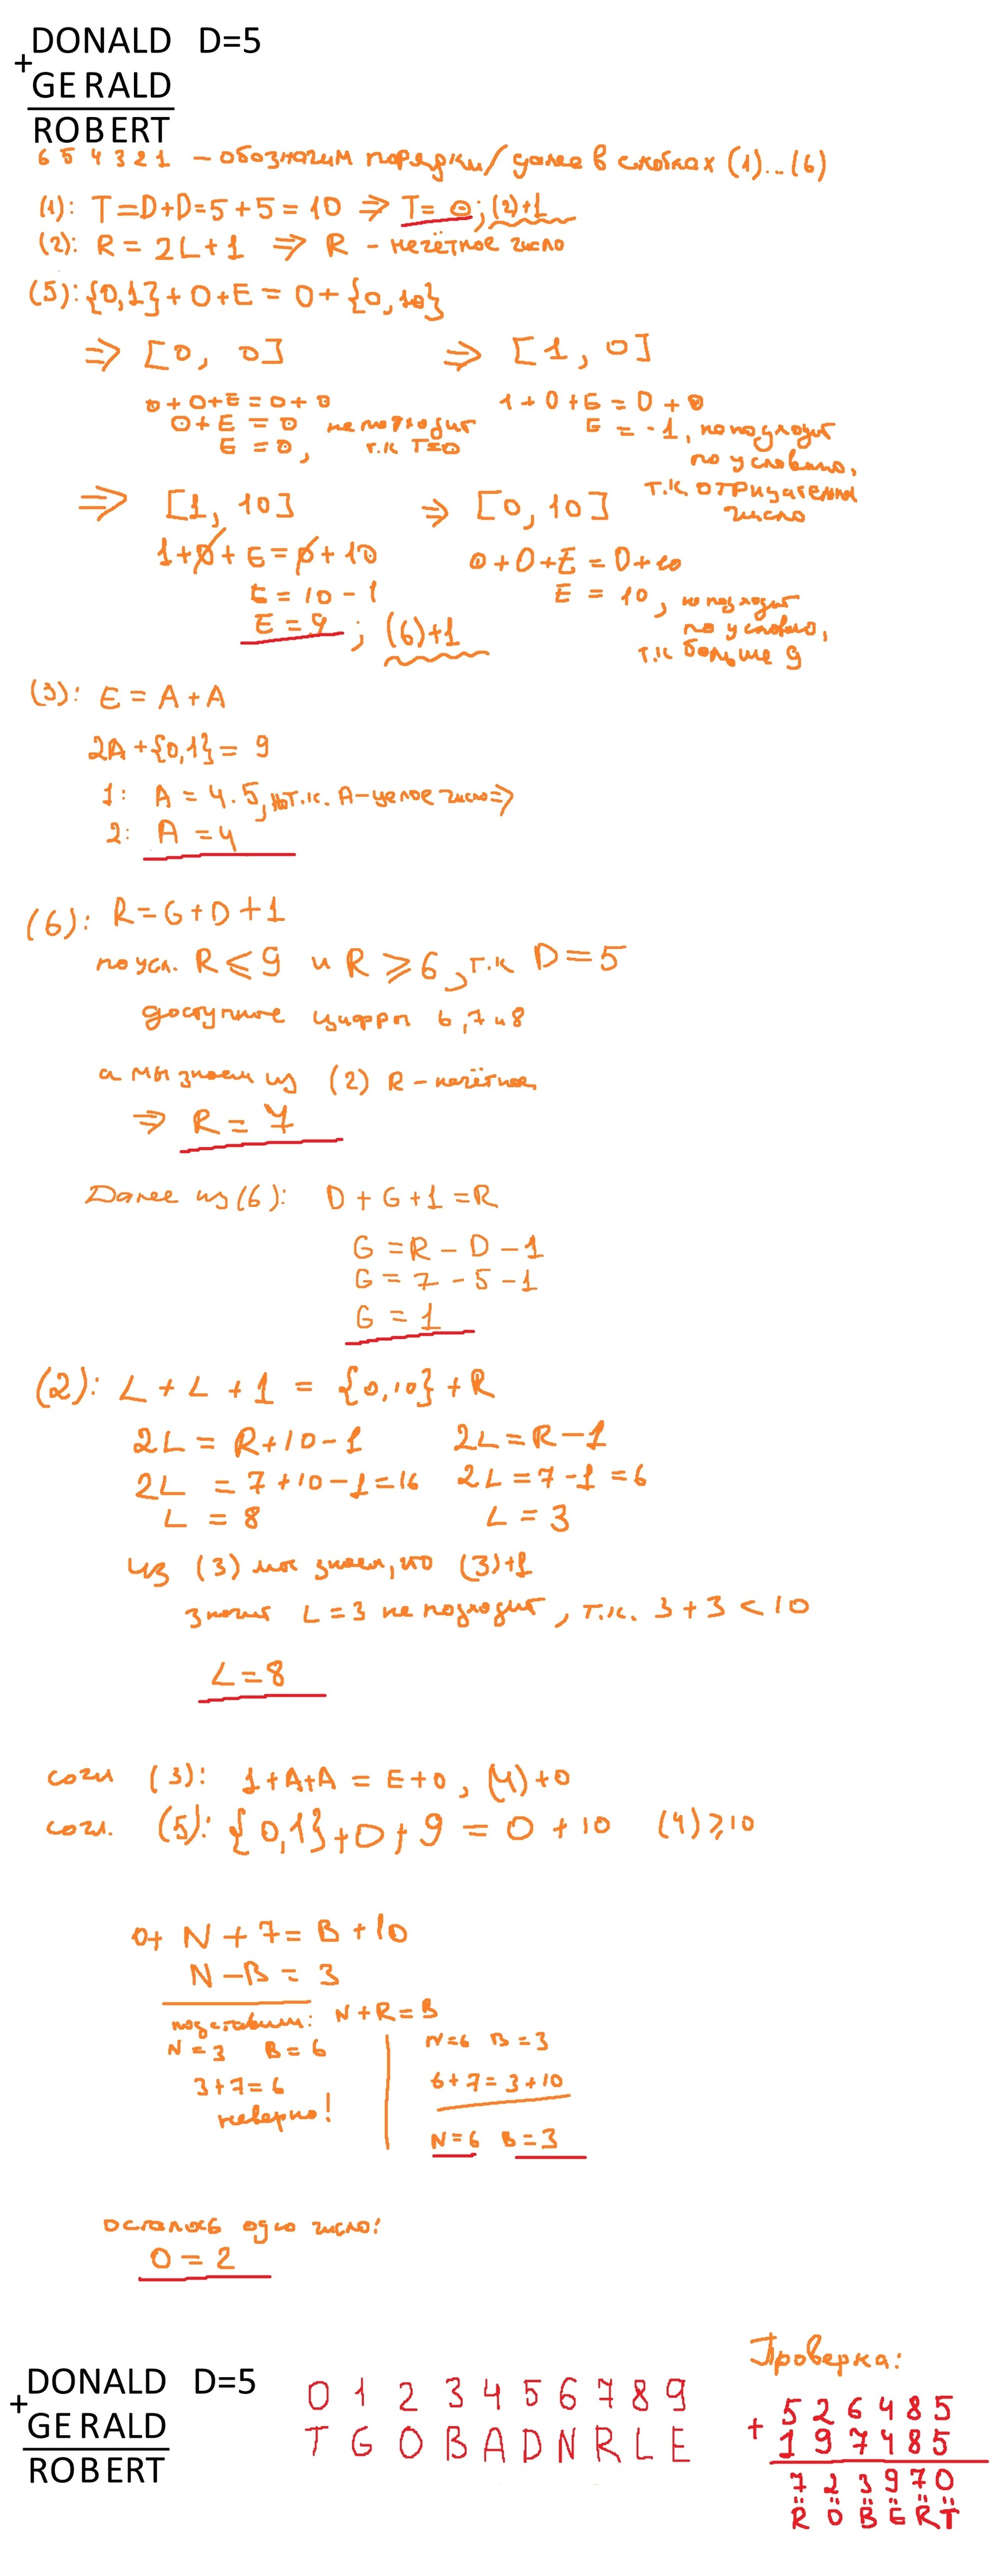 DONALD D=5
+
GERALD
ROBERT
6 5 4 3 2 1 – обозначим порядки/далее в скобках (1)...(6)
(1): T=D+D=5+5=10 ⇒ T=0; (2)+1
(2): R=2L+1 ⇒ R - нечётное число
(5): {0,1}+O+E=O+{0,10}
⇒ [0, 0] ⇒ [1, 0]
0+O+E=O+0 1+O+E=O+0
O+E=O не подходит E=-1, не подходит
E=0, т.к T=0 по условию,
т.к. отрицательн число
⇒ [1, 10] ⇒ [0, 10]
1+O+E=O+10 0+O+E=O+10
E=10-1 E=10, не подходит
E=9; (6)+1 по условию,
т.к больше 9
(3): E=A+A
2A+{0,1}=9
1: A=4.5, но т.к. A-целое число⇒
2: A=4
(6): R=G+D+1
по усл. R⩽9 и R⩾6, т.к D=5
доступные цифры 6,7 и 8
а мы знаем из (2) R-нечётное
⇒ R=7
Далее из (6): D+G+1=R
G=R-D-1
G=7-5-1
G=1
(2): L+L+1={0,10}+R
2L=R+10-1 2L=R-1
2L=7+10-1=16 2L=7-1=6
L=8 L=3
из (3) мы знаем, что (3)+1
значит L=3 не подходит, т.к. 3+3<10
L=8
согл (3): 1+A+A=E+0, (4)+0
согл. (5): {0,1}+O+9=O+10 (4)⩾10
0+N+7=B+10
N-B=3
подставим: N+R=B
N=3 B=6 N=6 B=3
3+7=6 6+7=3+10
неверно!
N=6 B=3
осталось одно число:
O=2
Проверка:
DONALD D=5 0 1 2 3 4 5 6 7 8 9 526485
+ +
GERALD T G O B A D N R L E 197485
ROBERT 723970
R O B E R T